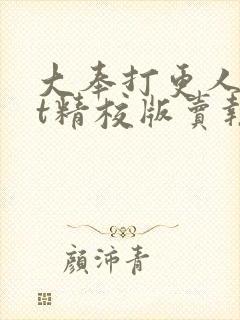 大奉打更人
t精校版賣報
顏沛青